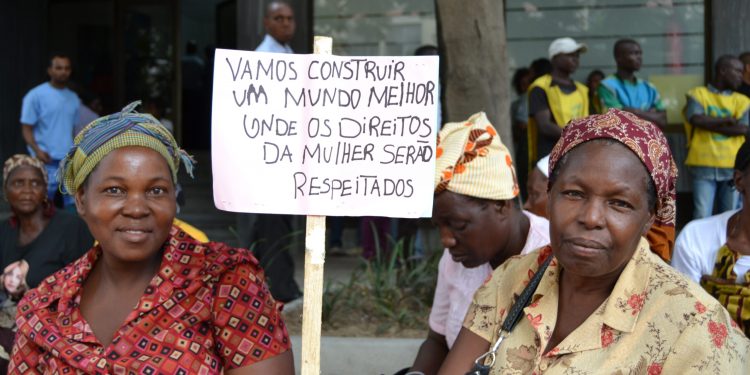 VAMOS CONSTRUIR
UM MUNDO MELHOR
ONDE OS DIREITOS
DA MULHER SERÃO
RESPEITADOS